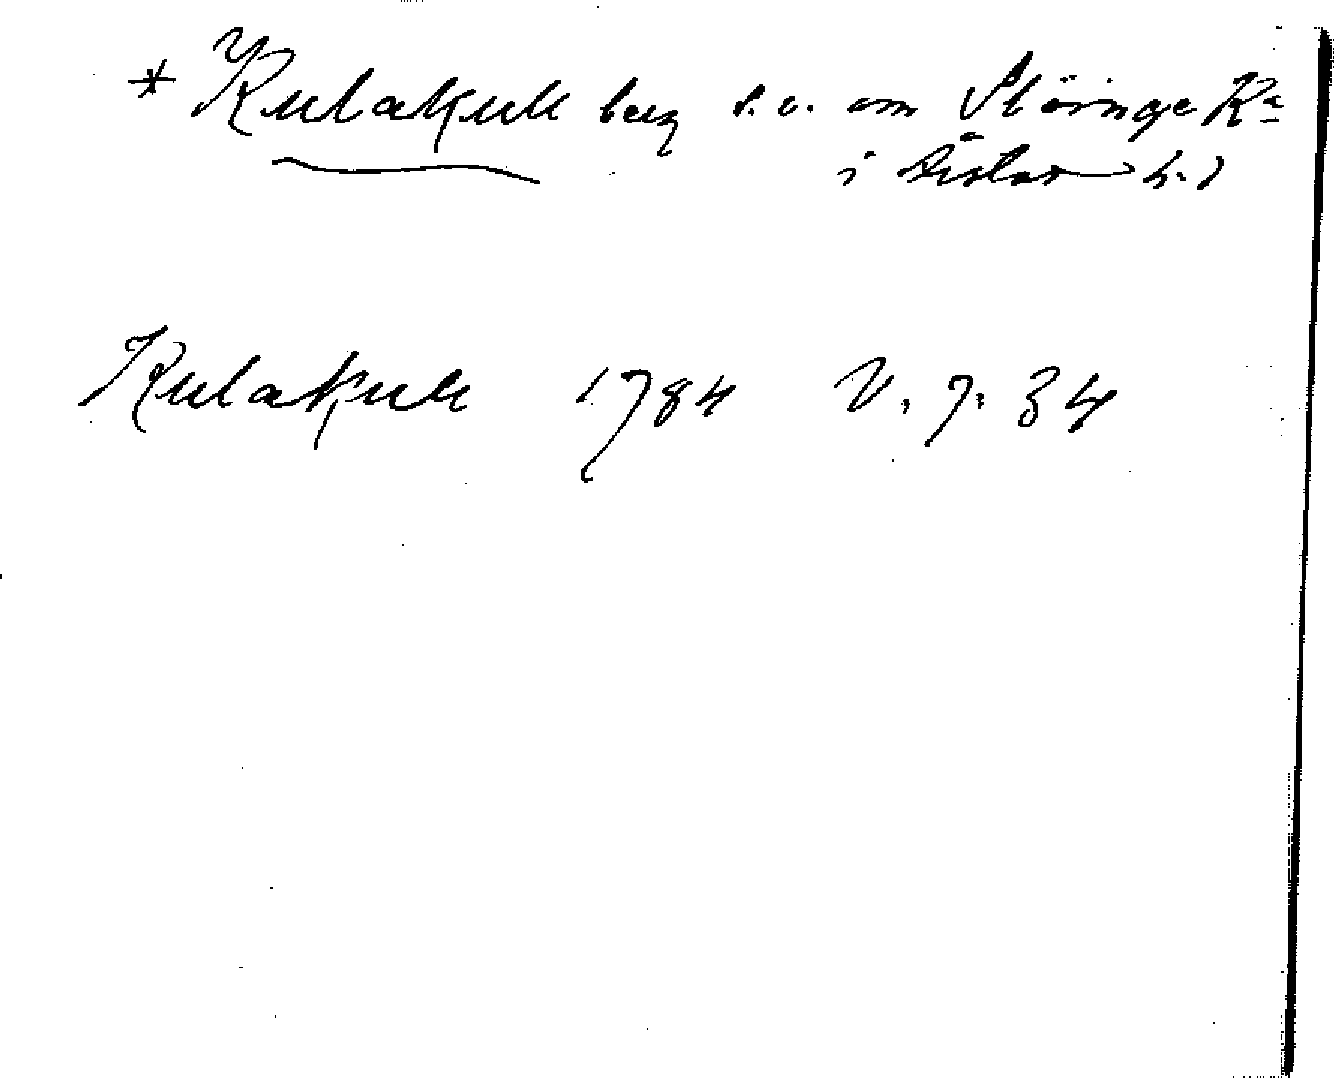 * Kulakull berg s.v. om Slöinge Ka
i Årstad h.d
Kulakull 1784 V. 7: 34